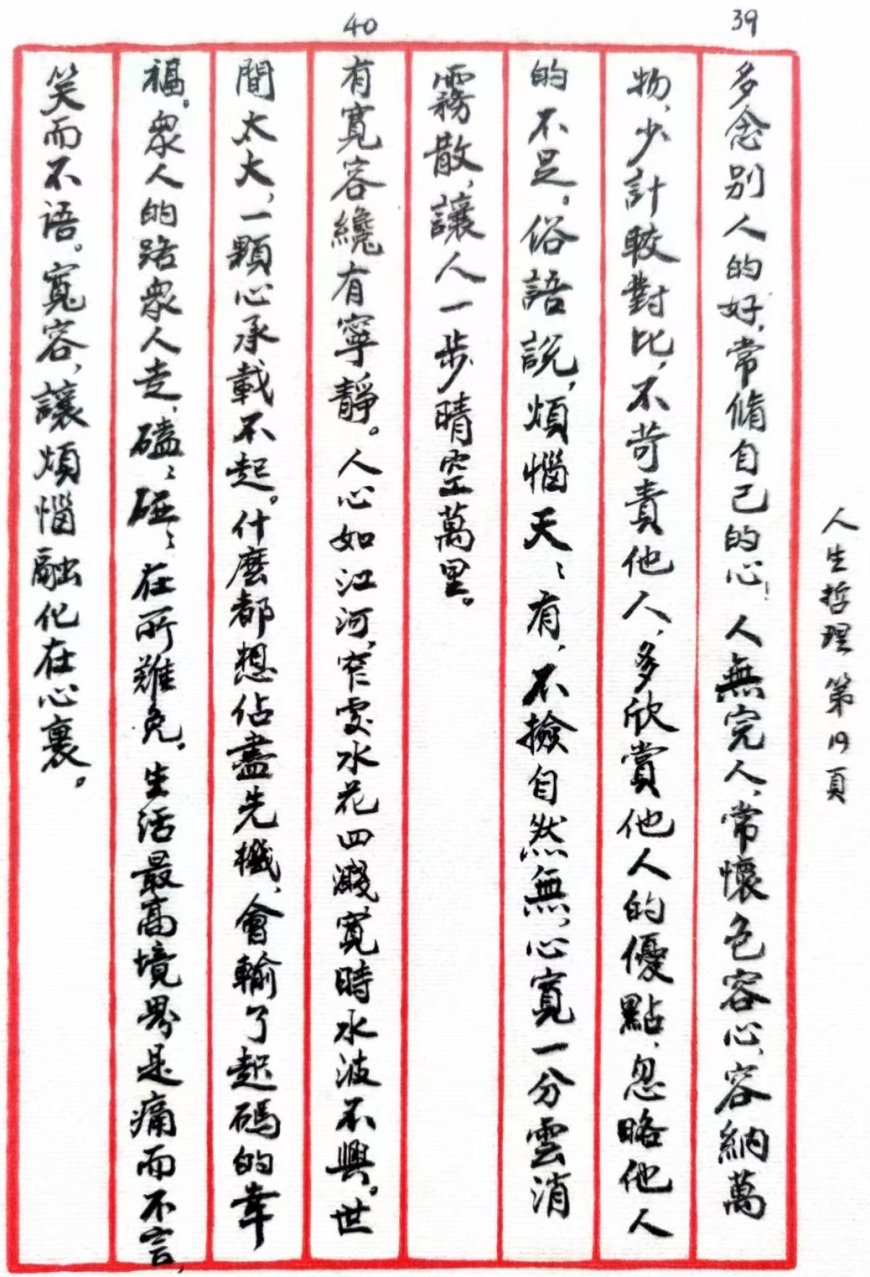 人生哲理 第19頁
39
多念別人的好，常脩自己的心，人無完人，常懷包容心，容納萬
物，少計較對比，不苛責他人，多欣賞他人的優點，忽略他人
的不足。俗語說，煩惱天〻有，不撿自然無，心寬一分雲消
霧散，讓人一步晴空萬里。
40
有寬容纔有寧靜。人心如江河，窄處水花四濺，寬時水波不興。世
間太大，一顆心承載不起。什麼都想佔盡先機，會輸了起碼的幸
福。衆人的路衆人走，磕〻碰〻在所難免。生活最高境界是痛而不言，
笑而不語。寬容，讓煩惱融化在心裏。